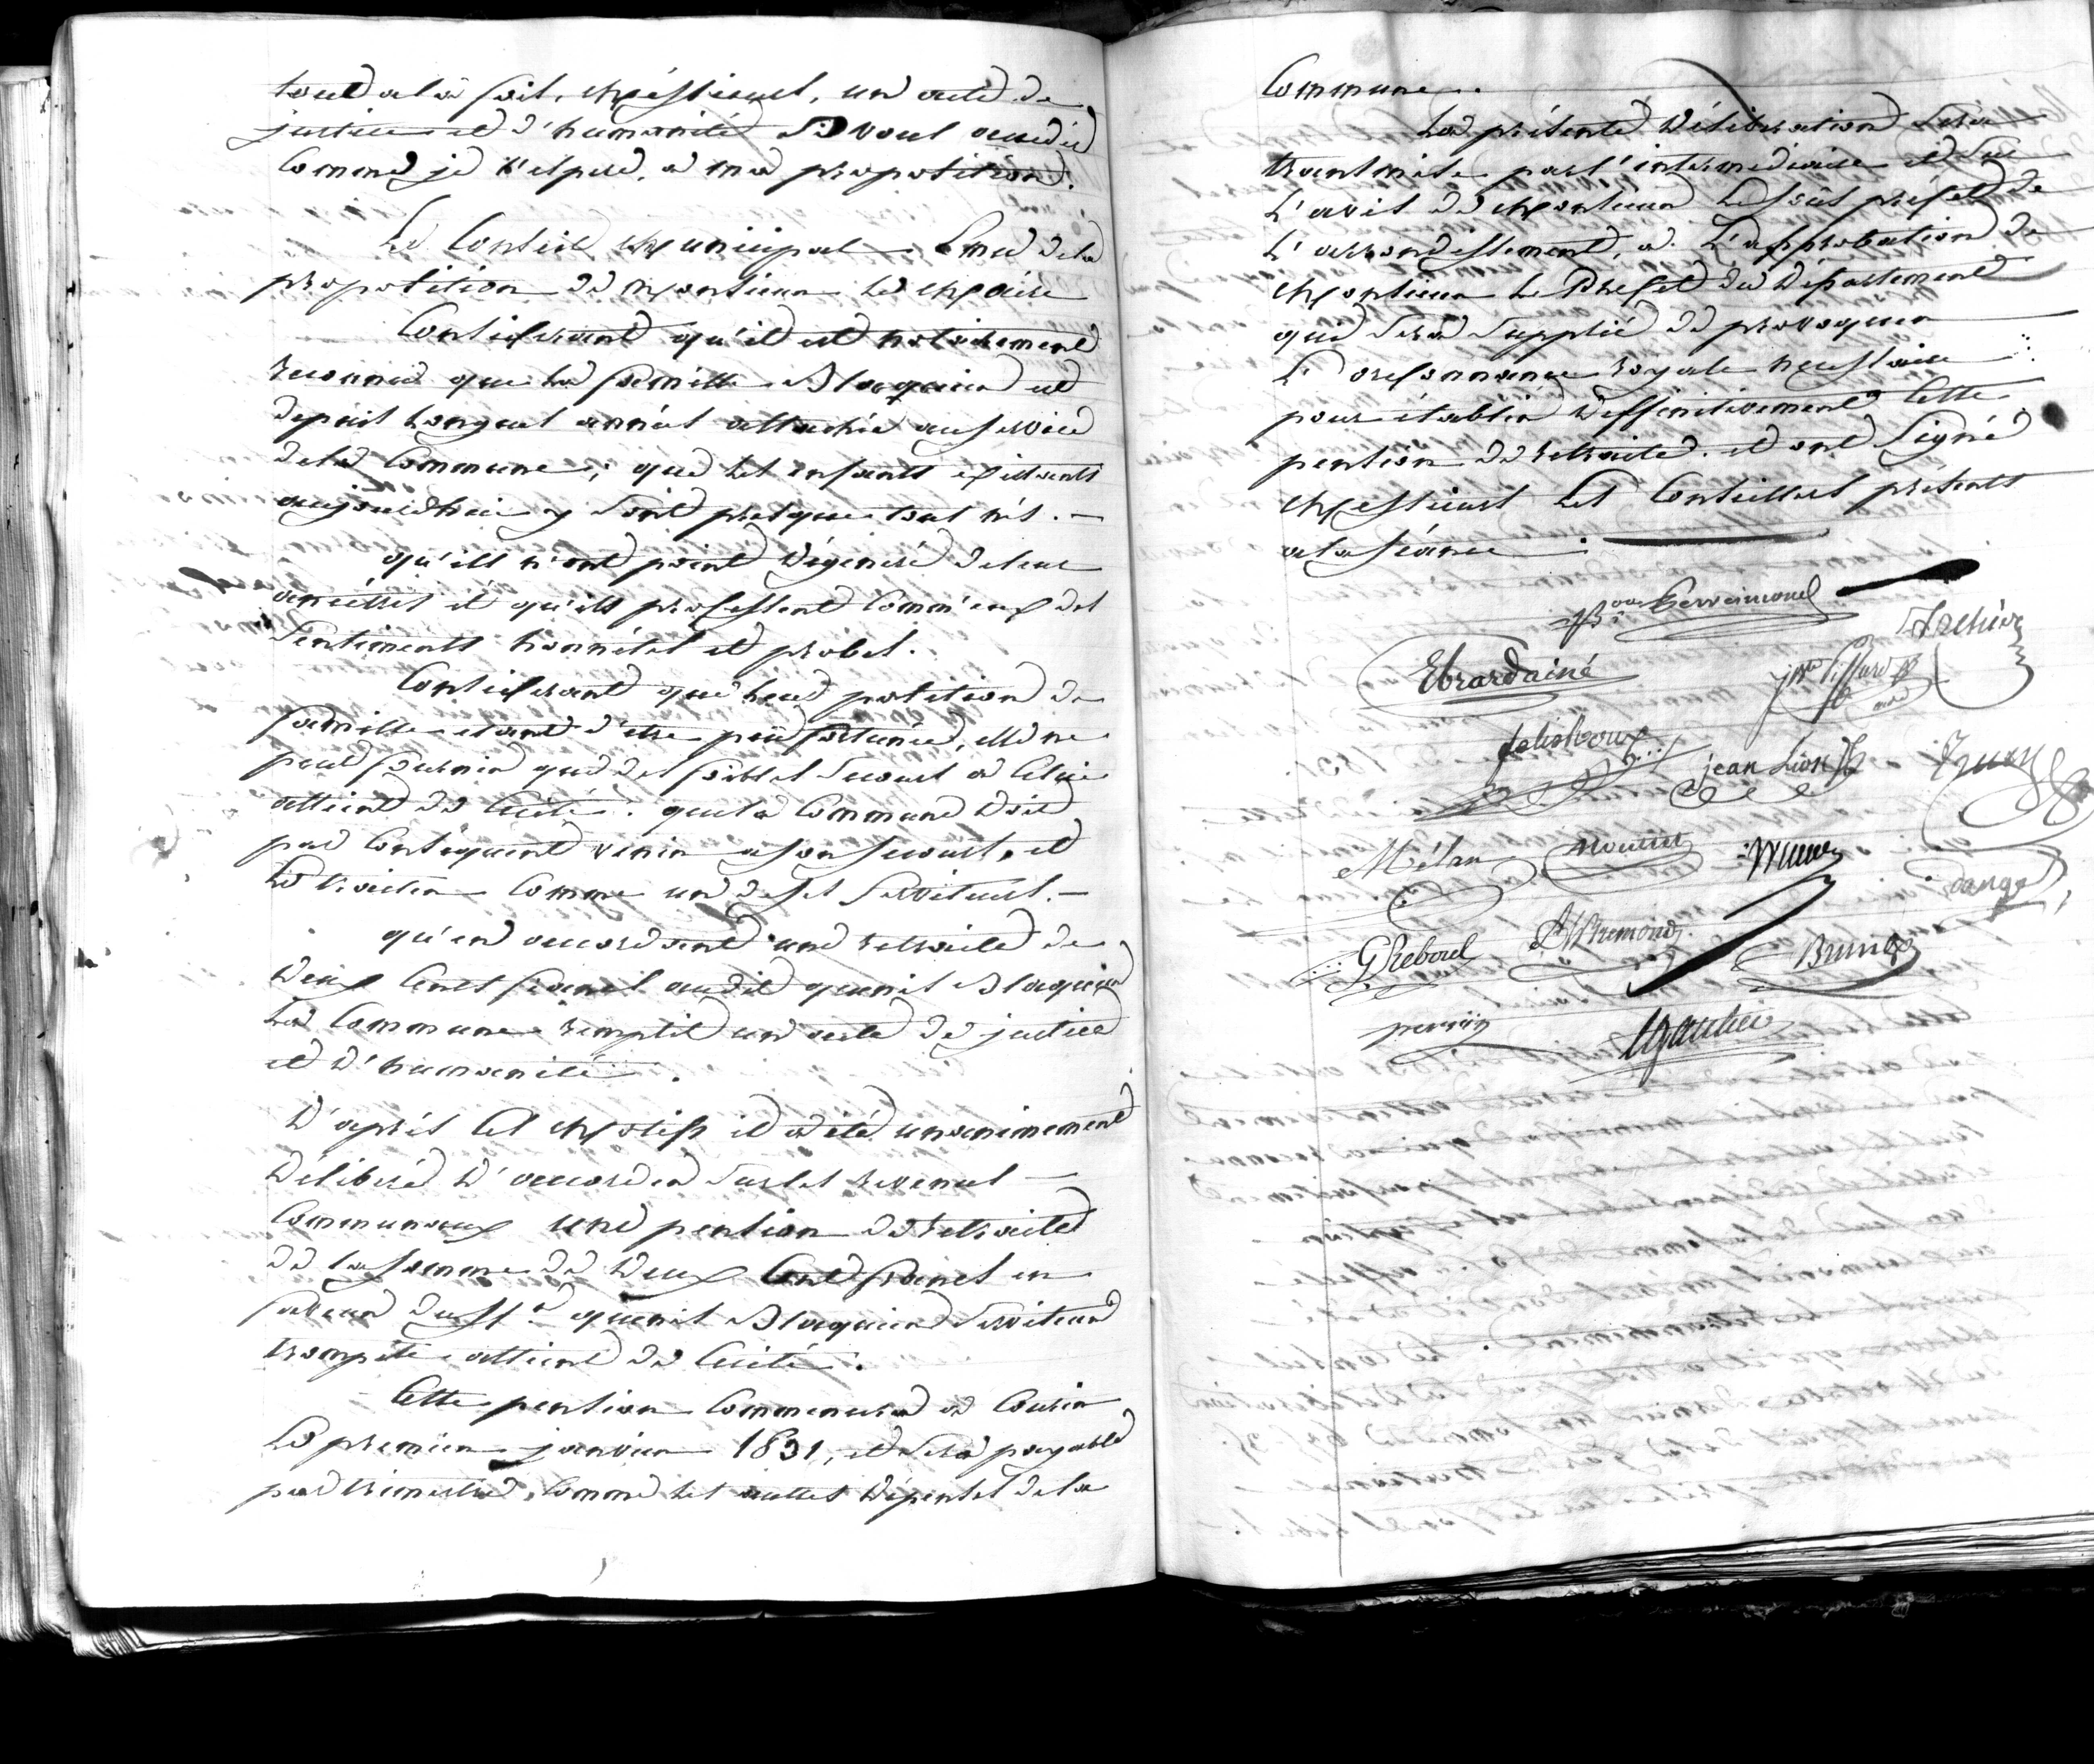 tout a la fois, Messieurs, un acte de
justice et d'humanité Si vous accedéz
Comme je l'espere, a ma proposition.
Le Conseil Municipal Emu de la
proposition de Monsieur le Maire
Considerant qu'il est notoirement
reconnu que la famille Blaquier est
depuis longues années attachée au service
de la Commune; que les enfants existants
aujourdhui y Sont presque tous nés. —
qu'ils n'ont point dégeneré de leur
ancêtres et qu'ils professent Comm'eux des
Sentiments honnêtes et probes.
Considerant que la position de
famille etant d'etre peu fortunée, elle ne
peut fournir que de foibles Secours a Celui
attient de Cécité. que la Commune doit
par Conséquent venir a son secours, et
le traiter Comme un de ses Serviteurs. —
qu'en accordant une retraite de
deux Cents francs audit Blaquier
La Commune remplit un acte de justice
et d'humanité.
D'après Ces Motifs il a été unanimement
Déliberé D'accorder Sur les revenus —
Communaux une pention de retraite
de la somme de deux Cent francs en
faveur du Sr. Blaquier Serviteur
trompete attient de Cécité.
Cette pention Commencera a Courir
Le premier janvier 1831, et Sera payable
par trimestre, Comme les autres dépenses de la
Commune.
La présente Déliberation Sera
transmise par l'intermediaire et Sur
L'avis de Monsieur le Sous préfet de
L'arrondissement, a L'approbation de
Monsieur le Préfet du Département
qui Sera Supplié de provoquer
L'ordonnance royale necessaire
pour établir deffinitivement Cette
pention de retraite. et ont Signé
Messieurs Les Conseillers présents
a la séance.
Ebrard ainé
jean Lion
Mélan
G Reboul
Bruno